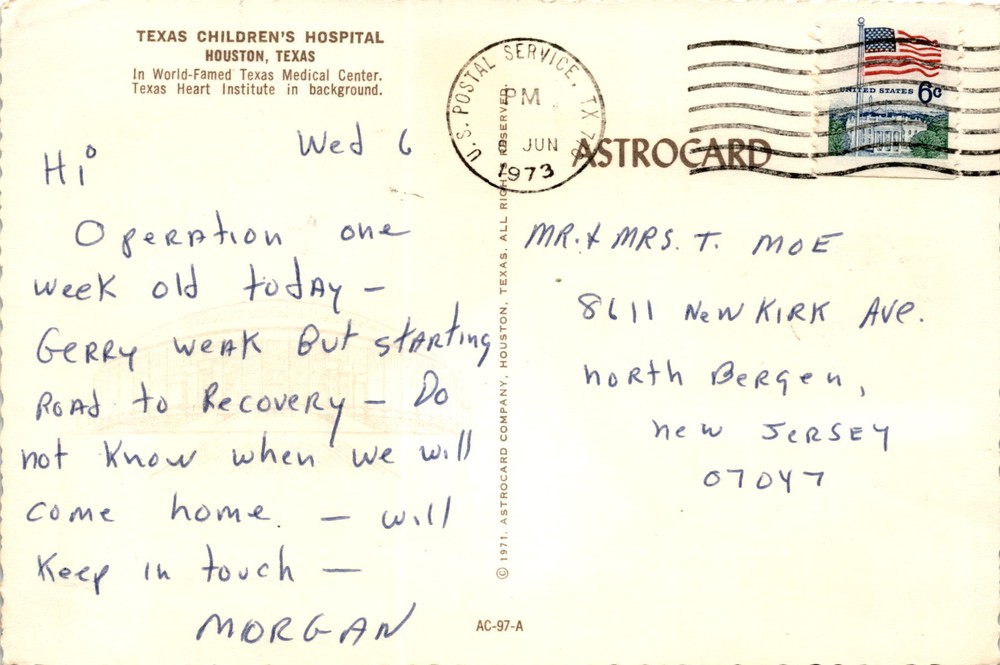 TEXAS CHILDREN'S HOSPITAL
HOUSTON, TEXAS
In World-Famed Texas Medical Center.
Texas Heart Institute in background.
Wed 6
Hi
Operation one
week old today -
Gerry weak But starting
Road to Recovery - Do
not know when we will
come home. - will
Keep in touch -
MORGAN
© 1971. ASTROCARD COMPANY, HOUSTON, TEXAS. ALL RIGHTS RESERVED
AC-97-A
U.S. POSTAL SERVICE, TX
PM
JUN
1973
ASTROCARD
UNITED STATES 6c
MR. & MRS. T. MOE
8611 NEWKIRK AVE.
North Bergen,
New JERSEY
07047